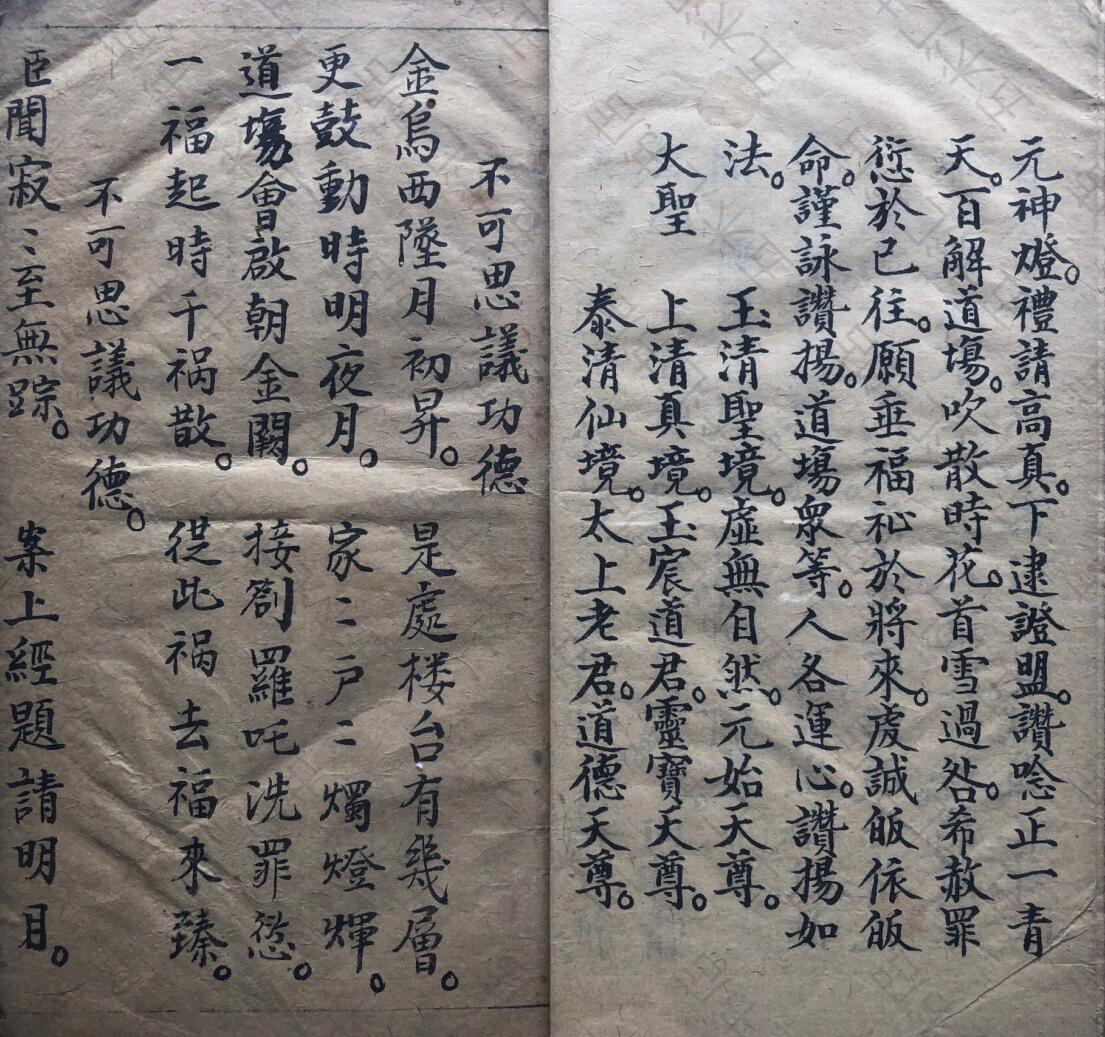 元神燈。禮請高真。下逮證盟。讚唸正一青
天。百解道塲。吹散時花。首雪過咎。希赦罪
愆於已往。願垂福祉於將來。虔誠皈依皈
命。謹詠讚揚。道塲衆等。人各運心。讚揚如
法。
玉清聖境。虛無自然。元始天尊。
大聖 上清真境。玉宸道君。靈寶天尊。
泰清仙境。太上老君。道德天尊。
不可思議功德
金烏西墜月初昇。是處楼台有幾層。
更鼓動時明夜月。家〻戸〻燭燈輝。
道塲會啟朝金闕。接劄羅吒洗罪愆。
一福起時千祸散。從此祸去福來臻。
不可思議功德。
臣聞寂〻至無踪。案上經題請明目。